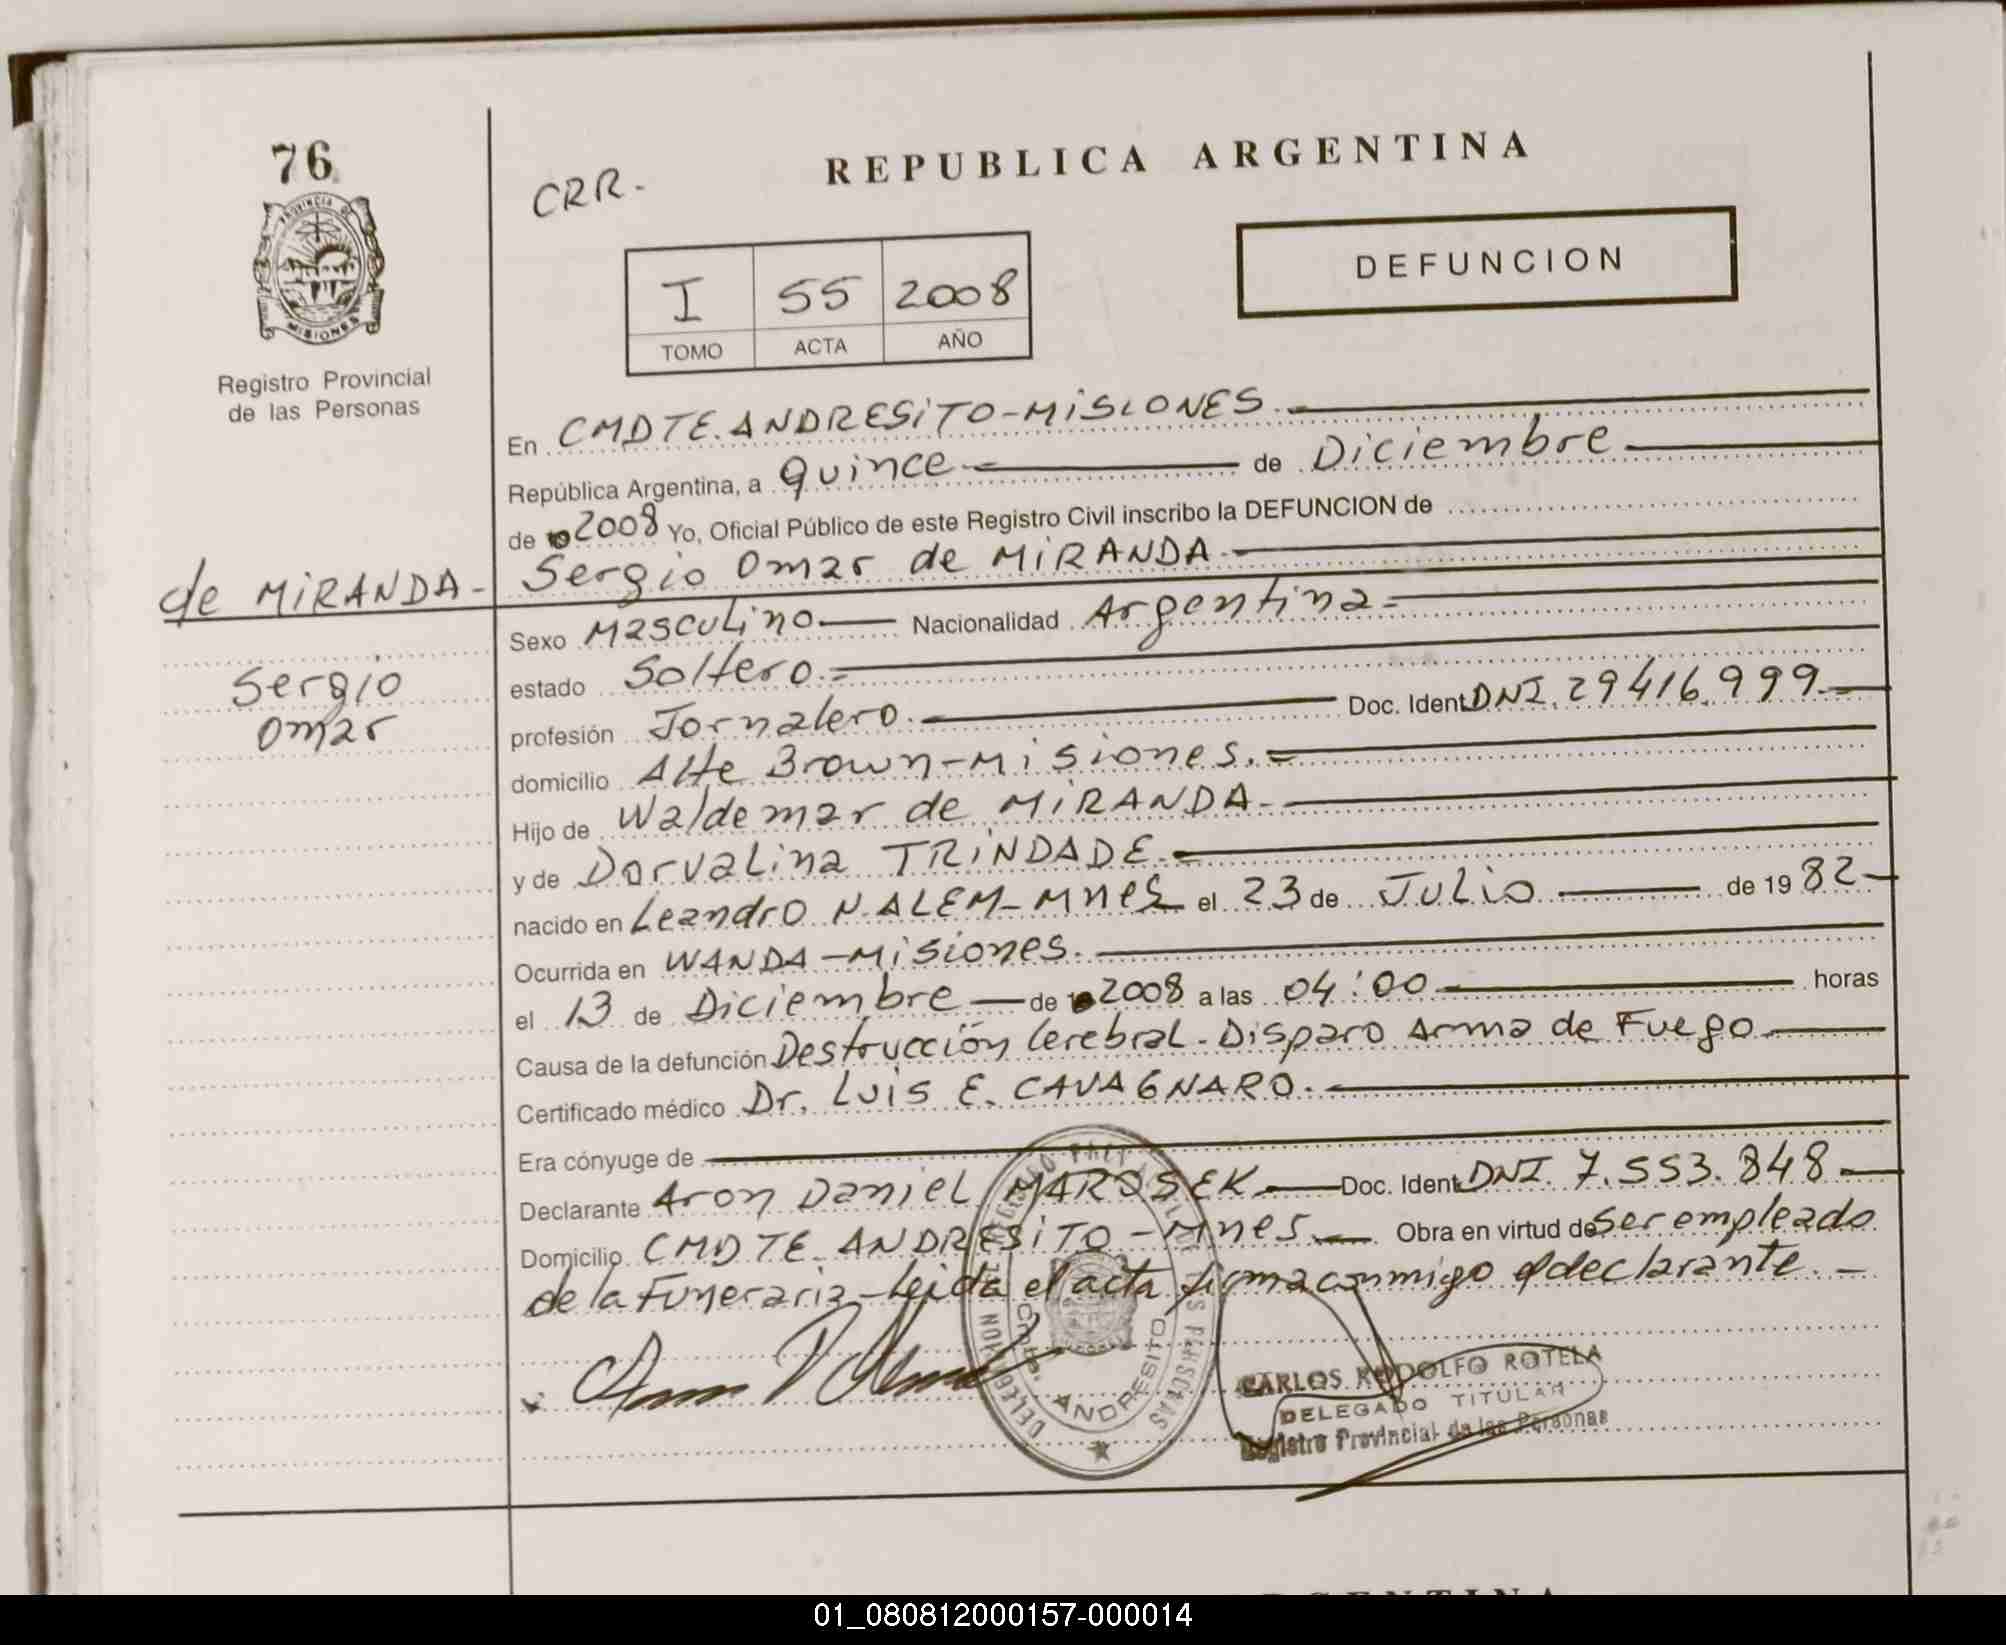 76
PROVINCIA DE
MISIONES
Registro Provincial
de las Personas
CRR.-
REPUBLICA ARGENTINA
DEFUNCION
I 55 2008
TOMO ACTA AÑO
En CMDTE. ANDRESITO-MISIONES.
República Argentina, a quince de Diciembre
de 2008 Yo, Oficial Público de este Registro Civil inscribo la DEFUNCION de
de MIRANDA- Sergio Omar de MIRANDA
Sexo Masculino Nacionalidad Argentina
Sergio
Omar
estado Soltero.
profesión Jornalero. Doc. Ident DNI. 29416.999
domicilio Alte Brown-Misiones.
Hijo de Waldemar de MIRANDA
y de Dorvalina TRINDADE.
nacido en Leandro N. ALEM-Mnes el 23 de Julio de 1982
Ocurrida en WANDA-Misiones.
el 13 de Diciembre de 2008 a las 04:00 horas
Causa de la defunción Destrucción Cerebral - Disparo Arma de Fuego
Certificado médico Dr. Luis E. CAVAGNARO.
Era cónyuge de
Declarante Aron Daniel MAROSEK Doc. Ident DNI. 7.553.848
Domicilio CMDTE. ANDRESITO-Mnes Obra en virtud de Ser empleado
de la Funeraria-Leida el acta firma conmigo el declarante.-
DELEGACION
DE LAS PERSONAS
Cmte. ANDRESITO
CARLOS RODOLFO ROTELA
DELEGADO TITULAR
Registro Provincial de las Personas
01_080812000157-000014